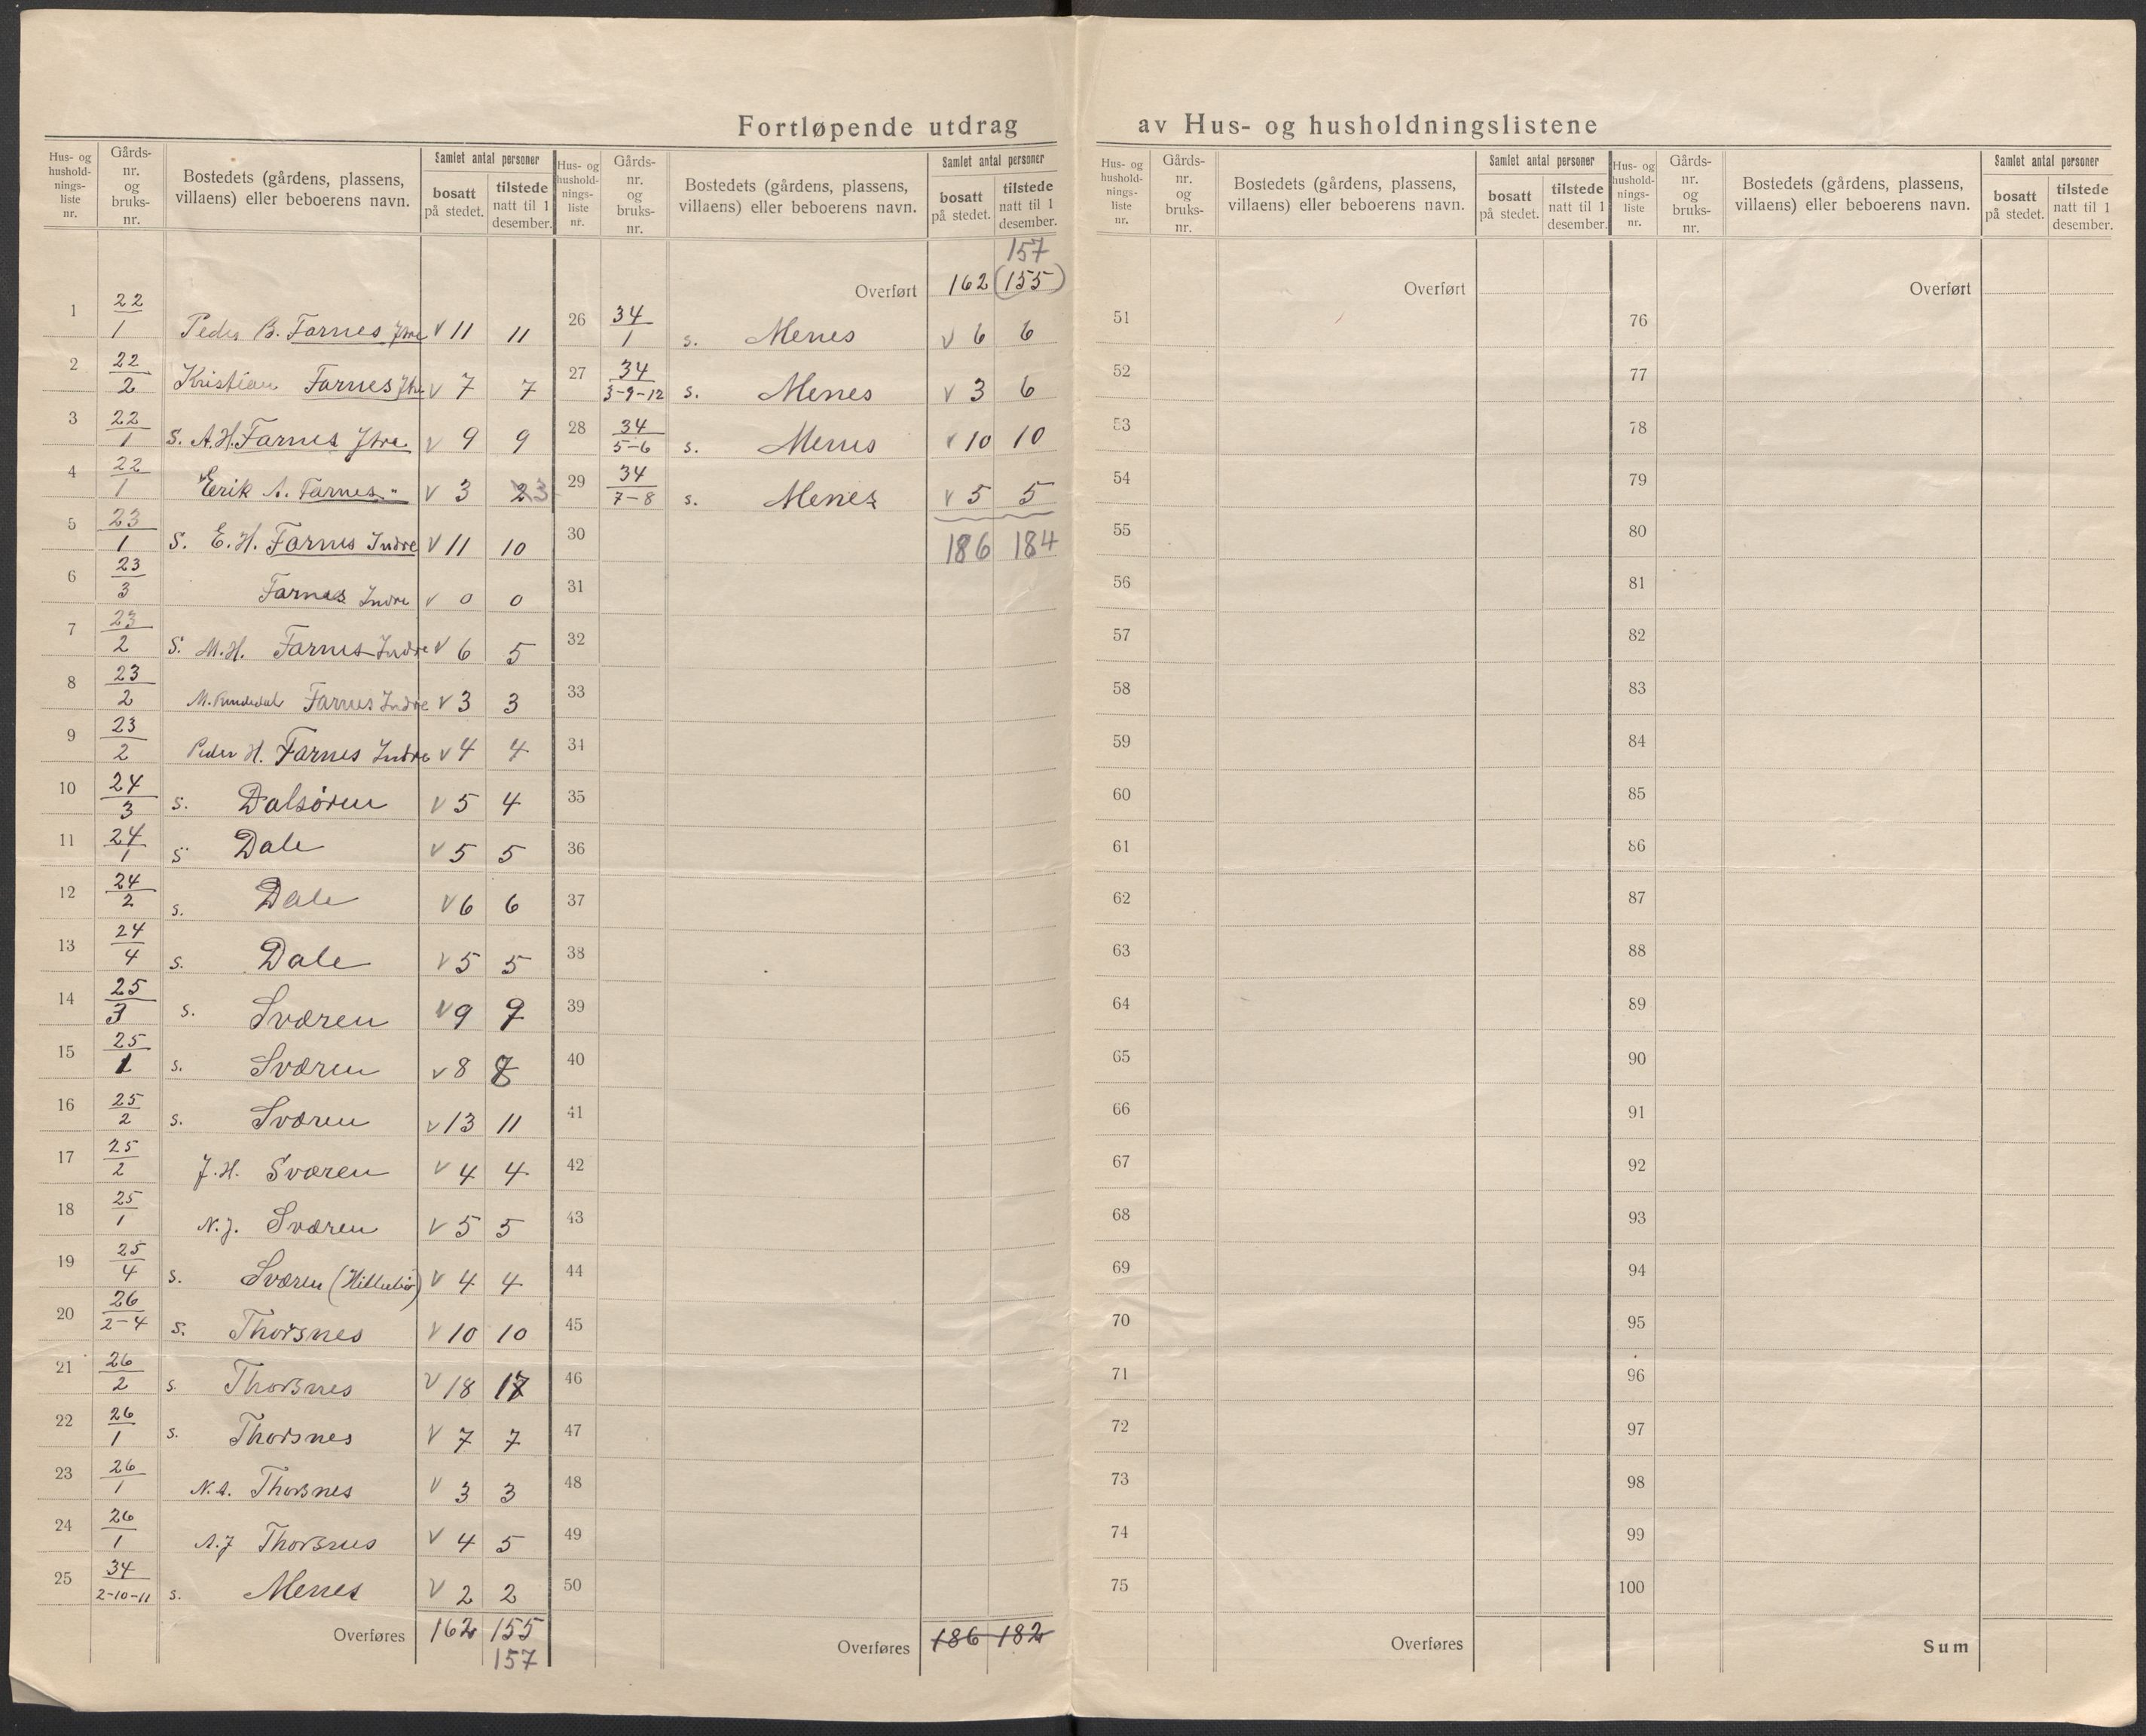 Fortløpende utdrag av Hus- og husholdningslistene
Hus- og hushold-nings-liste nr. | Gårds-nr. og bruks-nr. | Bostedets (gårdens, plassens, villaens) eller beboerens navn. | Samlet antal personer | bosatt på stedet. | tilstede natt til 1 desember.
1 22/1 Peder B. Farnes Ytre v 11 11
2 22/2 Kristian Farnes Ytre v 7 7
3 22/1 S. A.H. Farnes Ytre v 9 9
4 22/1 Erik A. Farnes " v 3 2 3
5 23/1 S. E.H. Farnes Indre v 11 10
6 23/3 Farnes Indre v 0 0
7 23/2 S. M.H. Farnes Indre v 6 5
8 23/2 Farnes Indre v 3 3
9 23/2 Peder H. Farnes Indre v 4 4
10 24/3 s. Dalsøren v 5 4
11 24/1 S Dale v 5 5
12 24/2 s. Dale v 6 6
13 24/4 s. Dale v 5 5
14 25/3 s. Sværen v 9 9
15 25/1 s. Sværen v 8
16 25/2 s. Sværen v 13 11
17 25/2 J.H. Sværen v 4 4
18 25/1 N.J. Sværen v 5 5
19 25/4 s. Sværen v 4 4
20 26/2-4 s. Thorsnes v 10 10
21 26/2 s. Thorsnes v 18 17
22 26/1 s. Thorsnes v 7 7
23 26/1 N.A. Thorsnes v 3 3
24 26/1 A.J Thorsnes v 4 5
25 34/2-10-11 s. Menes v 2 2
Overføres 162 155
157
Hus- og hushold-nings-liste nr. | Gårds-nr. og bruks-nr. | Bostedets (gårdens, plassens, villaens) eller beboerens navn. | Samlet antal personer | bosatt på stedet. | tilstede natt til 1 desember.
157
Overført 162 (155)
26 34/1 s. Menes v 6 6
27 34/3-9-12 s. Menes v 3 6
28 34/5-6 s. Menes v 10 10
29 34/7-8 s. Menes v 5 5
30 186 184
31
32
33
34
35
36
37
38
39
40
41
42
43
44
45
46
47
48
49
50
Overføres 186 182
Hus- og hushold-nings-liste nr. | Gårds-nr. og bruks-nr. | Bostedets (gårdens, plassens, villaens) eller beboerens navn. | Samlet antal personer | bosatt på stedet. | tilstede natt til 1 desember.
Overført
51
52
53
54
55
56
57
58
59
60
61
62
63
64
65
66
67
68
69
70
71
72
73
74
75
Overføres
Hus- og hushold-nings-liste nr. | Gårds-nr. og bruks-nr. | Bostedets (gårdens, plassens, villaens) eller beboerens navn. | Samlet antal personer | bosatt på stedet. | tilstede natt til 1 desember.
Overført
76
77
78
79
80
81
82
83
84
85
86
87
88
89
90
91
92
93
94
95
96
97
98
99
100
Sum